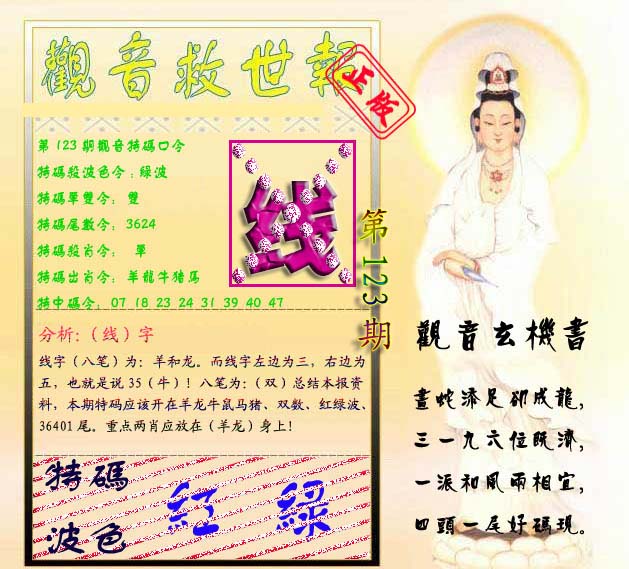 觀音救世報
正版
第123期觀音特碼口令
特碼殺波色令:綠波
特碼單雙令: 雙
特碼尾數令: 3624
特碼殺肖令: 單
特碼出肖令: 羊龍牛猪馬
特中碼令: 07 18 23 24 31 39 40 47
线
第123期
分析:(线)字
线字(八笔)为:羊和龙。而线字左边为三,右边为
五,也就是说35(牛)!八笔为:(双)总结本报资
料,本期特码应该开在羊龙牛鼠马猪、双数、红绿波、
36401尾。重点两肖应放在(羊龙)身上!
特碼
波色
紅 綠
觀音玄機書
畫蛇添足卻成龍,
三一九六位既濟,
一派和風兩相宜,
四頭一尾好碼現。